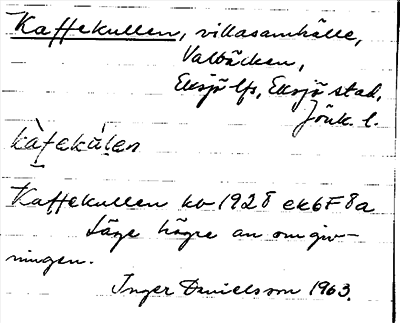 Kaffekullen, villasamhälle,
Valbäcken,
Eksjö lfs, Eksjö stad,
Jönk. l.
kàfekùlen
Kaffekullen kb 1928 ek6F8a
Läge högre än omgiv-
ningen.
Inger Danielsson 1963.